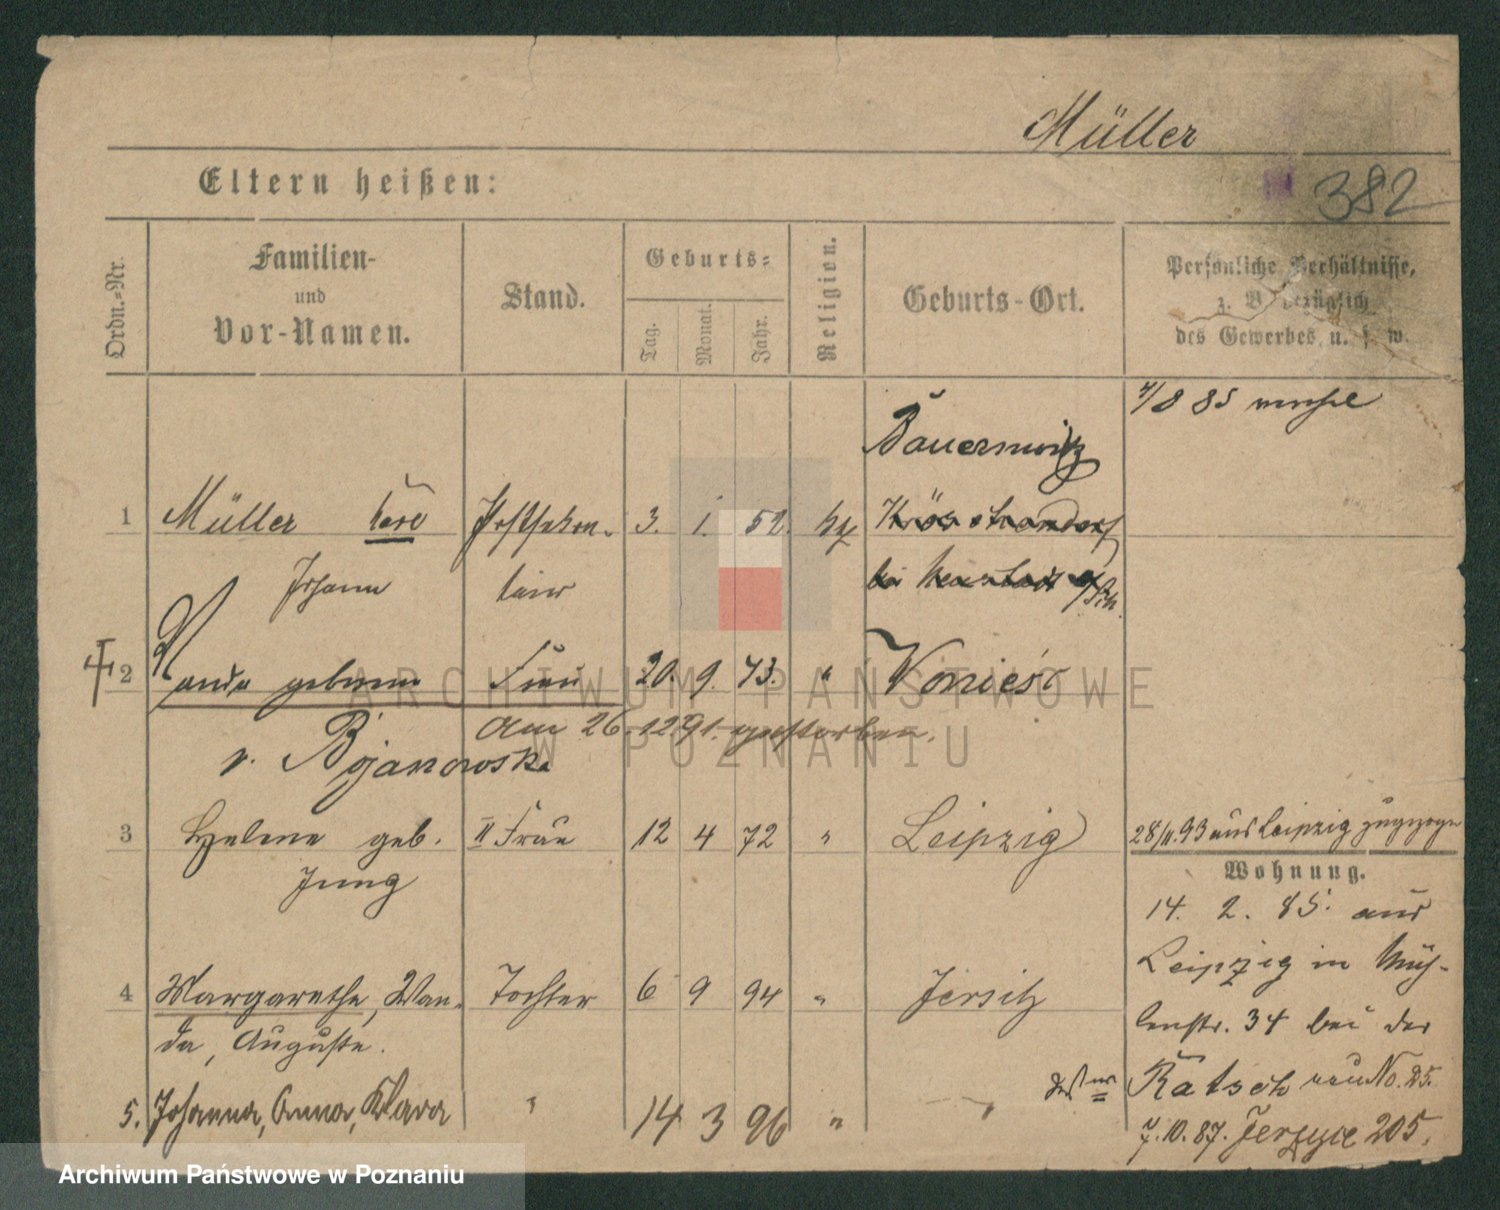 Müller
Eltern heißen:
382
Ordn.-Nr.
Familien-
und
Vor-Namen.
Stand.
Geburts-
Tag.
Monat.
Jahr.
Religion.
Geburts-Ort.
Persönliche Verhältnisse,
z. B. bezüglich
des Gewerbes u. s. w.
4/8 85
Bauerwitz
1 Müller Carl Postsekre- 3. 1. 52.
Johann tair
bei Neustadt
2 Wanda geborene Frau 20. 9. 73. "
Am 26.12.91. gestorben.
v. Bojanowska
3 Helene geb. II Frau 12 4 72 " Leipzig 28/11.93 aus Leipzig zugezogen
Jung
Wohnung.
14. 2. 85. aus
Leipzig in Müh-
4 Margarethe, Wan- Tochter 6 9 94 " Jersitz
lenstr. 34 bei der
da, Auguste.
Ratsch neu No. 25.
5. Johanna, Anna, Klara " 14 3 96 " "
7.10.87. Jerzyce 205.
ARCHIWUM PAŃSTWOWE
W POZNANIU
Archiwum Państwowe w Poznaniu